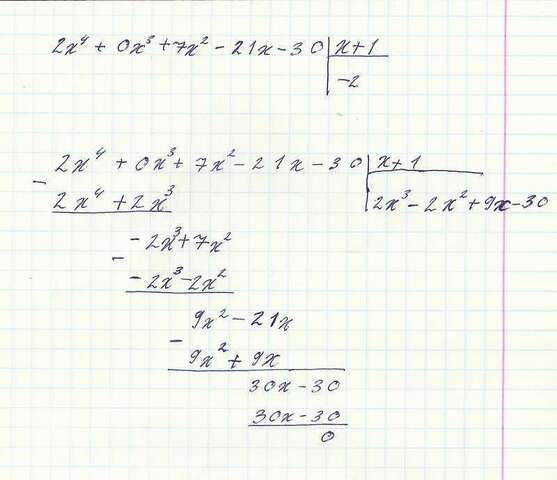 2x⁴ + 0x³ + 7x² - 21x - 30 | x+1
-2
2x⁴ + 0x³ + 7x² - 21x - 30 | x+1
- 2x⁴ + 2x³ | 2x³ - 2x² + 9x - 30
- 2x³ + 7x²
- - 2x³ - 2x²
9x² - 21x
- 9x² + 9x
30x - 30
30x - 30
0